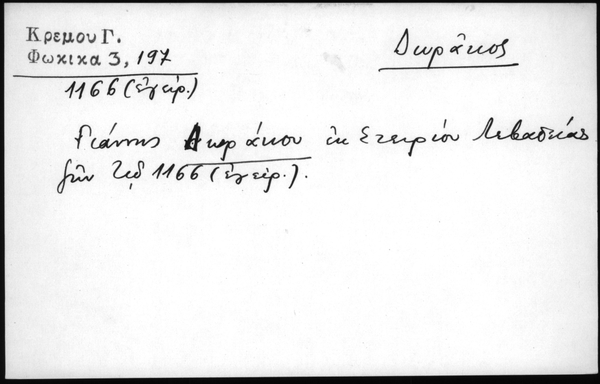 Κρεμου Γ.
Φωκικα 3, 197
1166 (ἐγειρ.)
Δωράκος
Γιάννης Δωράκου ἐκ Στειρίου Λεβαδείας
ζῶν τῷ 1166 (ἐγειρ.).